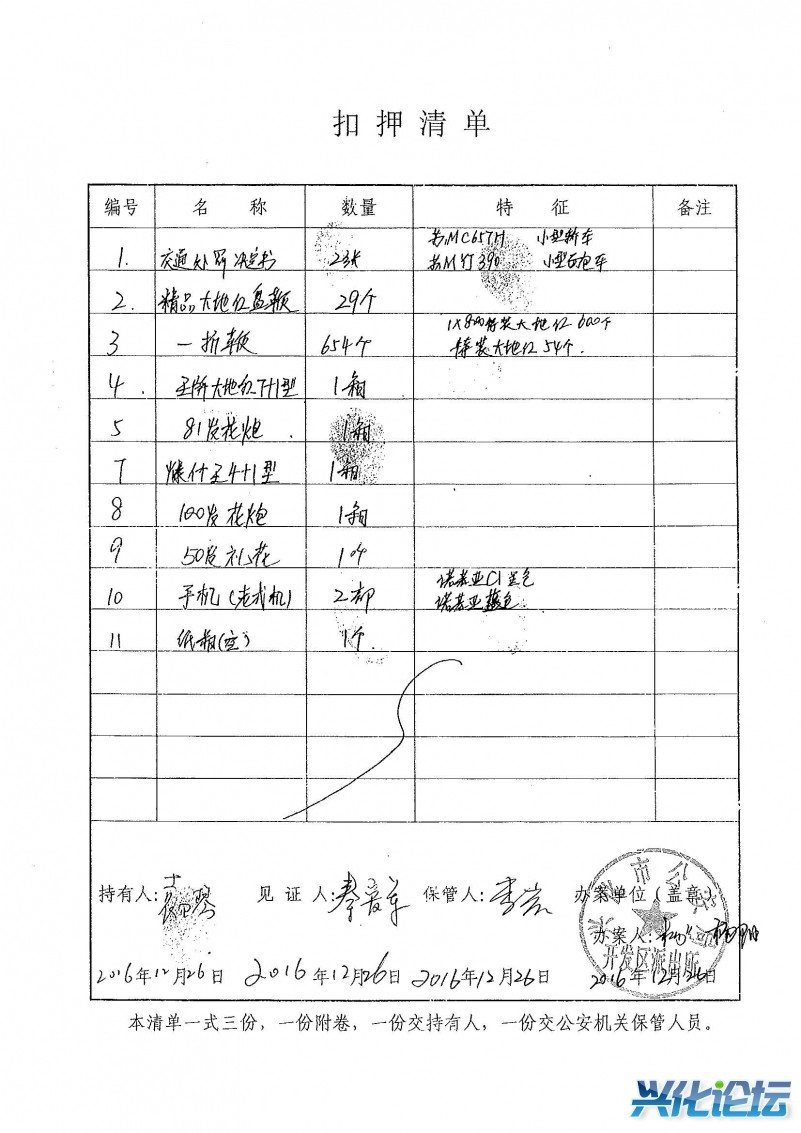 扣押清单
编号 名称 数量 特征 备注
1. 交通处罚决定书 23张 苏MC657H 小型轿车
苏M 390 小型面包车
2. 精品大地红盘鞭 29个
3 一折鞭 654个 1X800特装大地红600个
特装大地红54个.
4. 大地红7+1型 1箱
5 81发花炮. 1箱
7 4+1型 1箱
8 100发花炮 1箱
9 50发礼花 1个
10 手机(老式机) 2部 诺基亚C1黑色
诺基亚蓝色
11 纸箱(空) 1个
持有人: 见证人: 保管人: 办案单位(盖章)
市公安局
办案人:
开发区派出所
2016年12月26日 2016年12月26日 2016年12月26日 2016年12月26日
本清单一式三份，一份附卷，一份交持有人，一份交公安机关保管人员。
兴化论坛